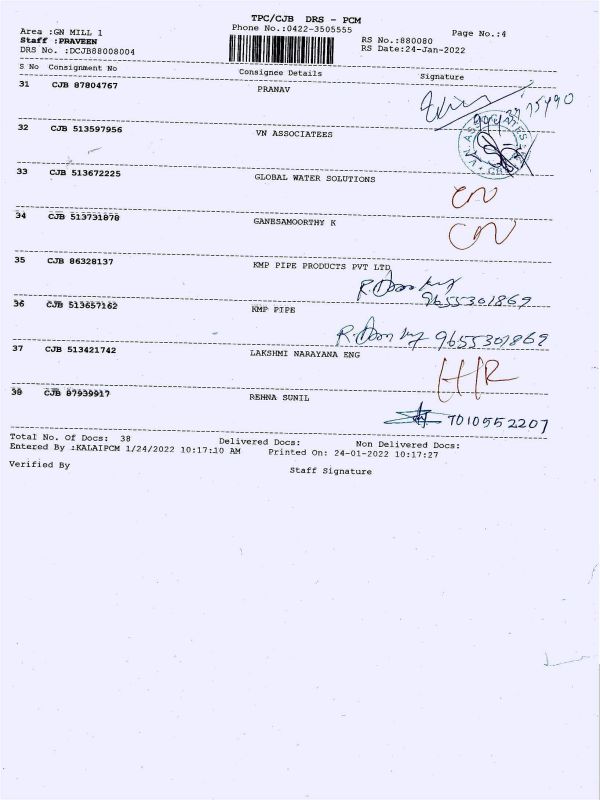 TPC/CJB DRS - PCM
Area :GN MILL 1 Phone No.:0422-3505555 Page No.:4
Staff :PRAVEEN RS No.:880080
DRS No. :DCJB88008004 RS Date:24-Jan-2022
S No Consignment No Consignee Details Signature
31 CJB 87804767 PRANAV
32 CJB 513597956 VN ASSOCIATEES
33 CJB 513672225 GLOBAL WATER SOLUTIONS
CN
34 CJB 513731878 GANESAMOORTHY K
CN
35 CJB 86328137 KMP PIPE PRODUCTS PVT LTD
9655301869
36 CJB 513657162 KMP PIPE
9655301869
37 CJB 513421742 LAKSHMI NARAYANA ENG
38 CJB 87939917 REHNA SUNIL
7010552207
Total No. Of Docs: 38 Delivered Docs: Non Delivered Docs:
Entered By :KALAIPCM 1/24/2022 10:17:10 AM Printed On: 24-01-2022 10:17:27
Verified By Staff Signature